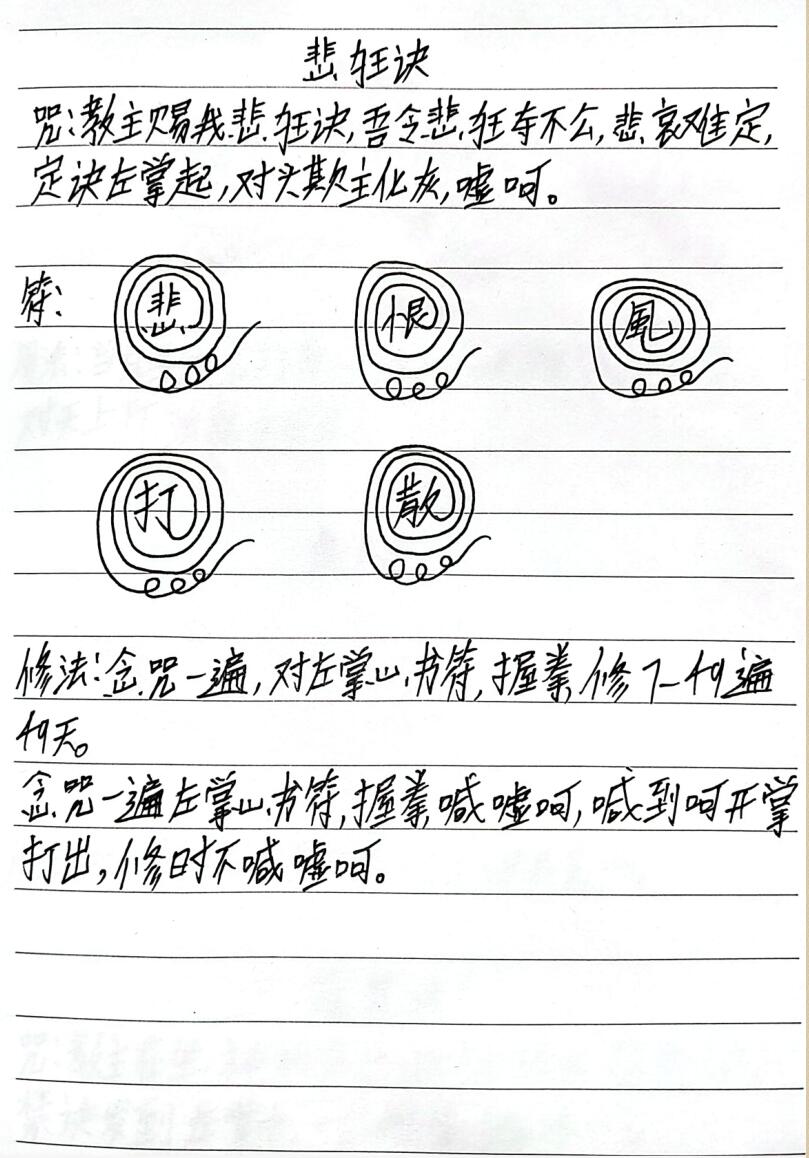 悲狂诀
咒:教主赐我悲狂诀,吾令悲狂夺不么,悲哀难定,
定诀左掌起,对头欺主化灰,嘘呵。
符:
悲 恨 風
打 散
修法:念咒一遍,对左掌心书符,握拳,修7一49遍
49天。
念咒一遍左掌心书符,握拳喊嘘呵,喊到呵开掌
打出,修时不喊嘘呵。